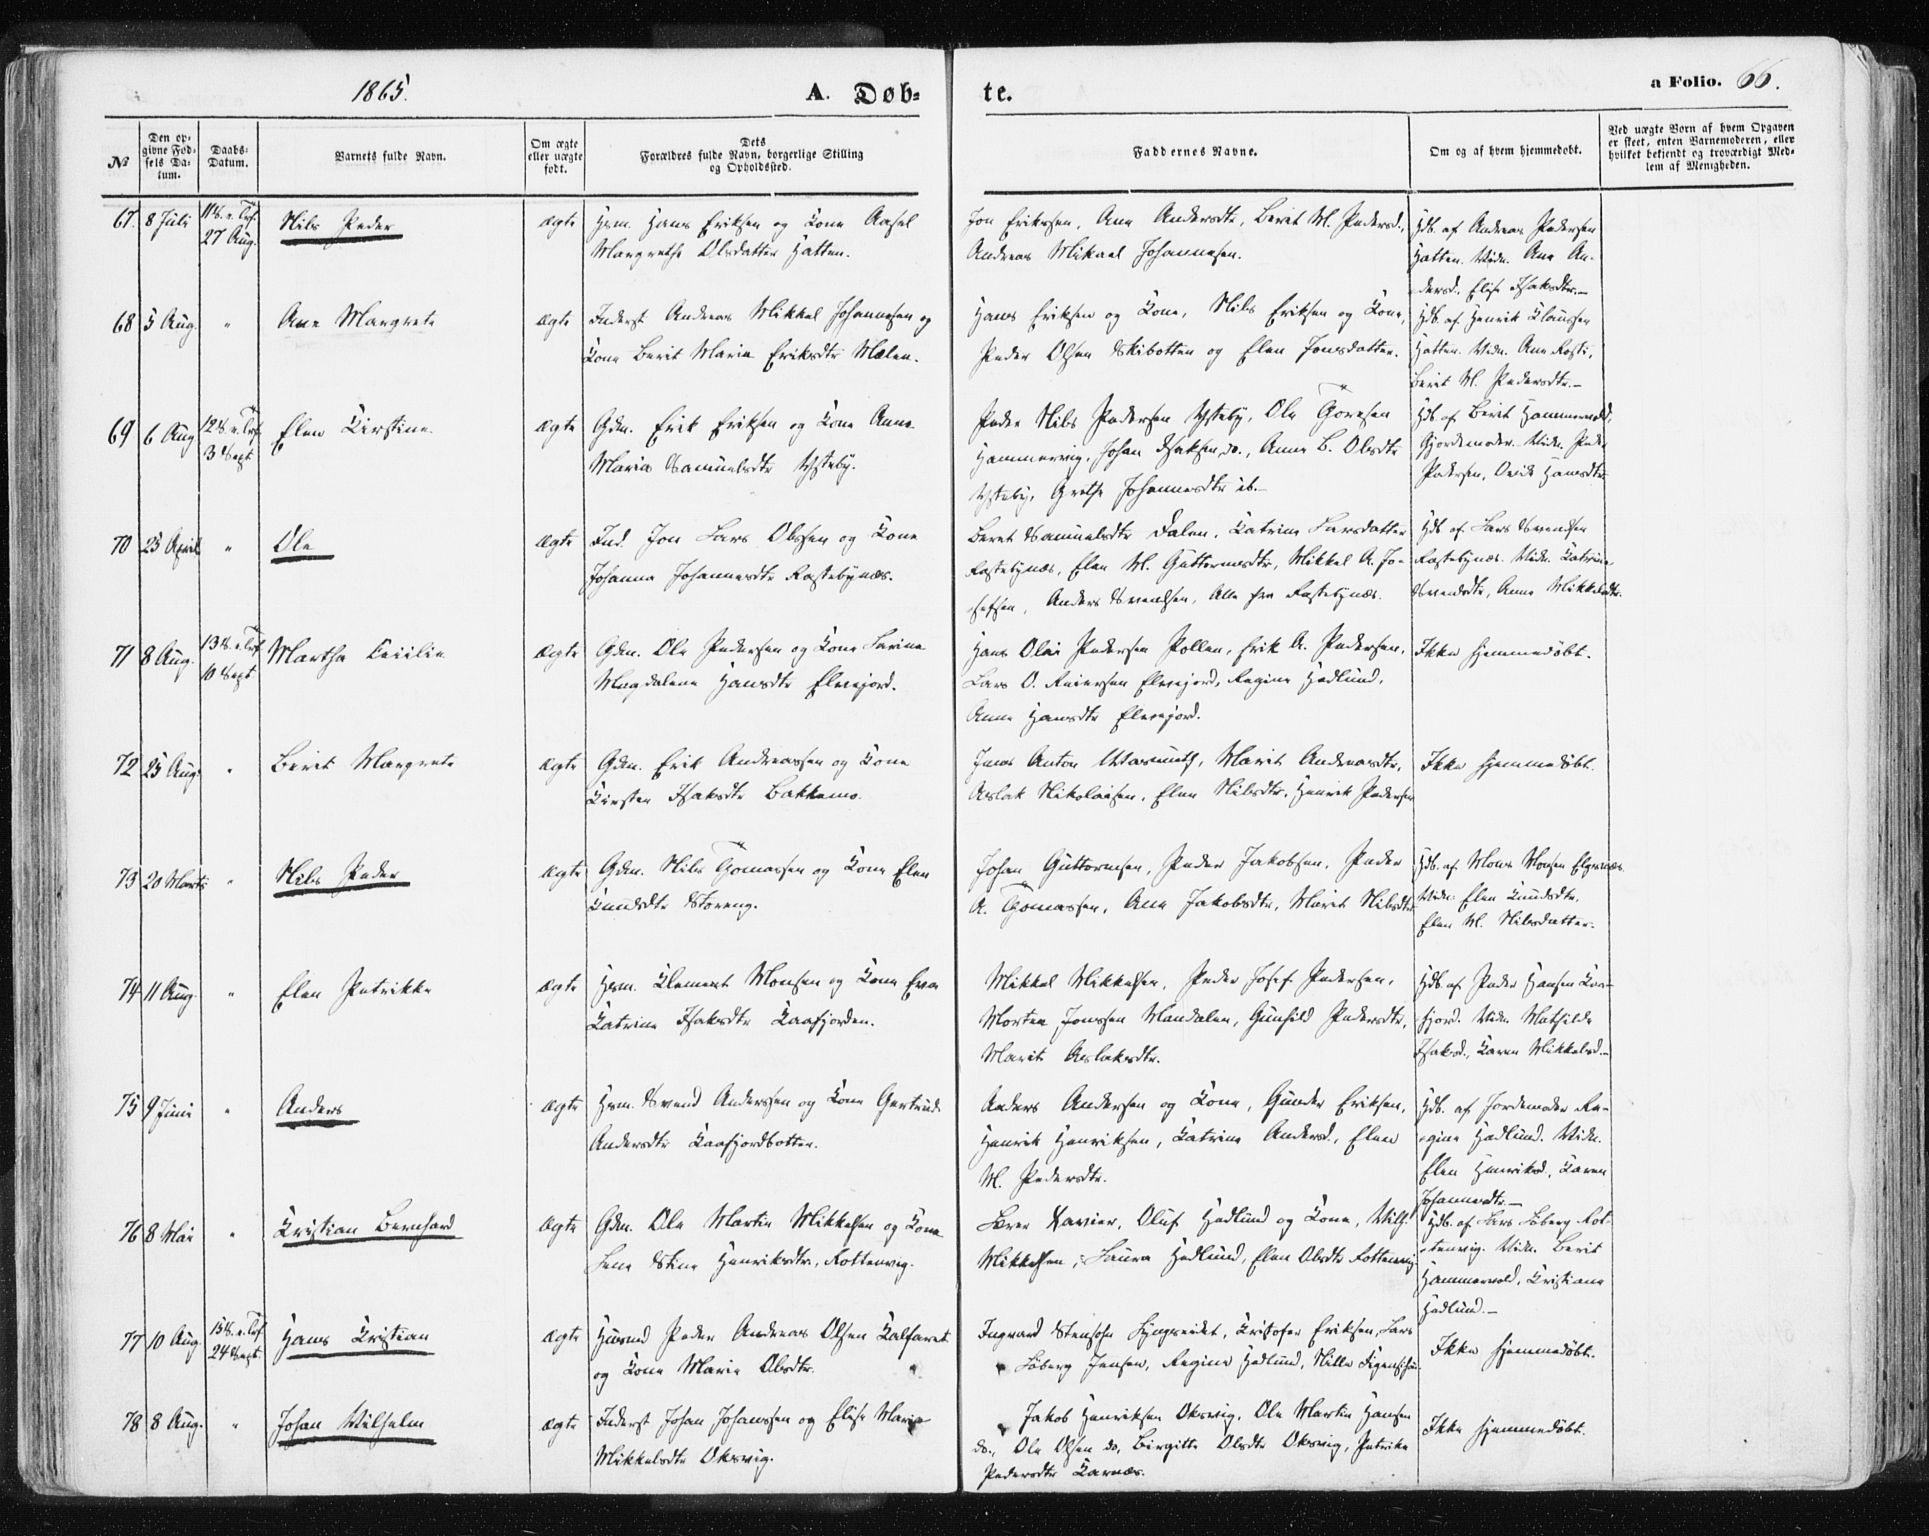 1865.
A. Døb-
te.
a Folio. 66.
№
Den op-
givne Fød-
sels Da-
tum.
Daabs-
Datum.
Barnets fulde Navn.
Om ægte
eller uægte
født.
Dets
Forældres fulde Navn, borgerlige Stilling
og Opholdssted.
Faddernes Navne.
Om og af hvem hjemmedøbt.
Ved uægte Børn af hvem Opgaven
er skeet, enten Barnemoderen, eller
hvilket bekjendt og troværdigt Med-
lem af Menigheden.
67. 8 Juli 11 S. e. Tref. 27 Aug. Nils Peder ægte Hsm. Hans Eriksen og Kone Aasel
Margrethe Olsdatter Hatten.
Jon Eriksen, Ane Andersdtr, Berit M. Pedersd.,
Andreas Mikael Johannesen.
Hdb. af Andreas Pedersen
Hatten. Vidn. Ane An-
dersd., Elise Isaksdtr.-
68 5 Aug. " Ane Margrete ægte Inderst Andreas Mikkel Johannesen og
Kone Berit Maria Eriksdtr Mælen.
Hans Eriksen og Kone, Nils Eriksen og Kone,
Peder Olsen Skibotten og Elen Jonsdatter.
Hdb. af Henrik Klaussen
Hatten. Vidn. Ane
Berit M. Pedersdtr.-
69 6 Aug 12 S. e. Tref. 3 Sept Elen Kirstine ægte Gdm. Erik Eriksen og Kone Anne
Maria Samuelsdtr Ysteby.
Peder Nils Pedersen Ysteby, Ole Thoresen
Hammervig, Johan Isaksen do., Anne B. Olsdtr
Ysteby, Grethe Johannesdtr ib.-
Hdb. af Berit Hammervold,
Gjordemoder. Vidn. Peder
Pedersen, Hansdtr.
70 25 April " Ole ægte Ind. Jon Lars Olssen og Kone
Johanna Johannesdtr Rastebynæs.
Beret Samuelsdtr Dalen, Katrine Larsdatter
Rastebynæs, Elen M. Guttormsdtr, Mikkel A. Jo-
sefsen, Anders Svendsen, Alle fra Rastebynæs.
Hdb. af Lars Svendsen
Rastebynæs. Vidn. Katrine
Svendsdtr, Anne Mikkelsdtr.
71 8 Aug. 13 S. e. Tref. 10 Sept Martha Cecilie ægte Gdm. Ole Pedersen og Kone Larine
Magdalena Hansdtr Elvejord.
Hans Olai Pedersen Pollen, Erik A. Pedersen,
Lars O. Reiersen Elvejord, Regine Hedlund,
Anne Hansdtr Elvejord.
Ikke hjemmedøbt.
72 25 Aug. " Berit Margrete ægte Gdm. Erik Andreassen og Kone
Kirsten Isaksdtr Bakkemo.
Jens Anton Wasmuth, Marit Andreasdtr,
Aslak Nikolaisen, Elen Nilsdtr, Henrik Pedersen
Ikke hjemmedøbt.
73 20 Marts " Nils Peder ægte Gdm. Nils Thomassen og Kone Elen
Knudsdtr Storeng.
Johan Guttormsen, Peder Jakobsen, Peder
A. Thomassen, Ane Jakobsdtr, Marit Nilsdtr
Hdb. af Mons Monsen Elgenæs
Vidn: Elen Knudsdtr,
Elen M. Nilsdatter.
74 11 Aug. " Elen Petrikke ægte Hsm. Klement Monsen og Kone Eva
Katrine Isaksdtr Kaafjorden.
Mikkel Mikkelsen, Peder Josef Pedersen,
Morten Jonssen Mandalen, Gunhild Pedersdtr,
Marit Aslaksdtr.
Hdb. af Peder Hansen Kaa-
fjord. Vidn. Mathilde
Isaksd., Karen Mikkelsd.-
75 9 Juni " Anders ægte Hsm. Svend Anderssen og Kone Gertrud
Andersdtr Kaafjordbotten.
Anders Andersen og Kone, Gunder Eriksen,
Henrik Henriksen, Katrine Andersd., Elen
M. Pedersdtr.
Hdb. af Jordemoder Re-
gine Hedlund. Vidn.
Elen Henriksd., Karen
Johannesdtr.-
76 8 Mai " Kristian Bernhard ægte Gdm. Ole Martin Mikkelsen og Kone
Lene Stine Henriksdtr, Rottenvig.
Lærer Xavier, Oluf Hedlund og Kone, Wilh.
Mikkelsen, Laura Hedlund, Elen Olsdtr Rottenvig
Hdb. af Lars Løberg Rot-
tenvig. Vidn. Berit
Hammervold, Kristiane
Hedlund.-
77 10 Aug. 15 S. e. Tref 24 Sept. Hans Kristian ægte Husmd Peder Andreas Olsen Kalfaret
og Kone Marie Olsdtr.
Ingvard Stensohn Lyngseidet, Kristofer Eriksen, Lars
Løberg Jensen, Regine Hedlund, Nille
Ikke hjemmedøbt.
78 8 Aug. " Johan Wilhelm ægte Inderst Johan Johanssen og Elise Marie
Mikkelsdtr Oksvig.
Jakob Henriksen Oksvig, Ole Martin Hansen
do., Ole Olsen do, Birgitte Olsdtr Oksvig, Petrike
Pedersdtr Karnæs.
Ikke hjemmedøbt.